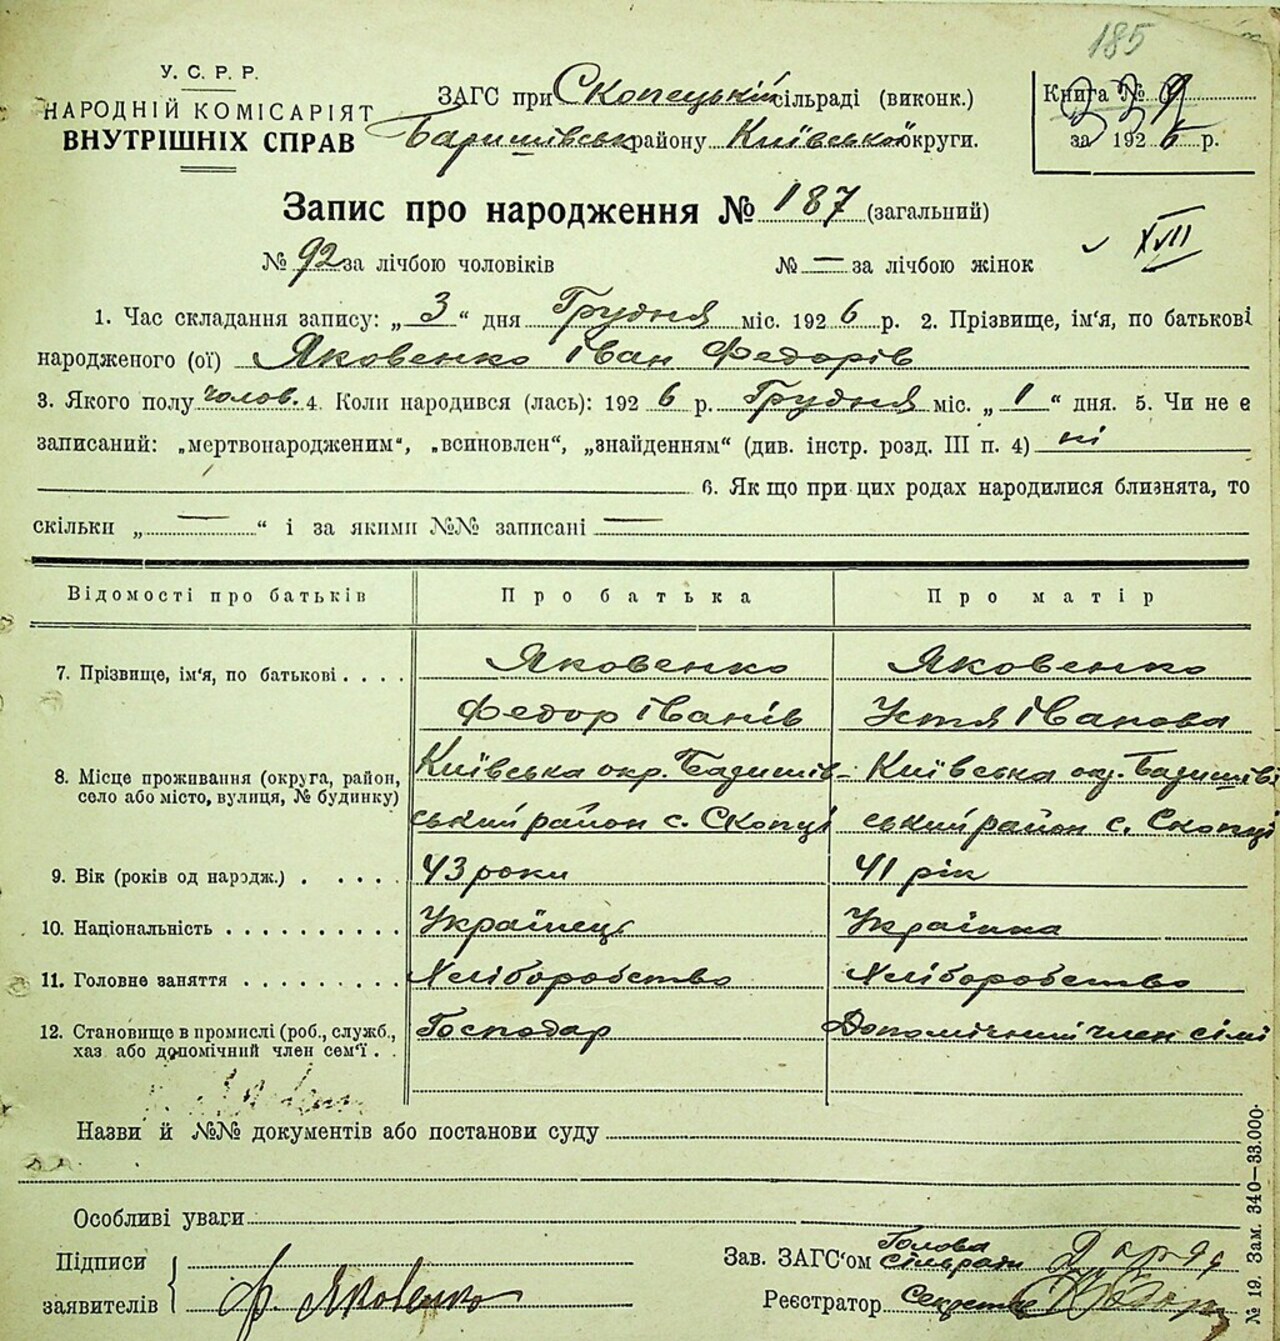 185
У. С. Р. Р.
НАРОДНІЙ КОМІСАРІЯТ
ВНУТРІШНІХ СПРАВ
ЗАГС при Скопецькій сільраді (виконк.)
Баришівськ району Київської округи.
Книга №
за 1926 р.
Запис про народження № 187 (загальний)
№ 92 за лічбою чоловіків № — за лічбою жінок
XVII
1. Час складання запису: „ 3 “ дня Грудня міс. 1926 р. 2. Прізвище, ім'я, по батькові
народженого (ої) Яковенко Іван Федорів
3. Якого полу чолов. 4. Коли народився (лась): 1926 р. Грудня міс. „ 1 “ дня. 5. Чи не є
записаний: „мертвонародженим“, „всиновлен“, „знайденням“ (див. інстр. розд. III п. 4) ні
6. Як що при цих родах народилися близнята, то
скільки „ — “ і за якими №№ записані —
Відомості про батьків Про батька Про матір
7. Прізвище, ім'я, по батькові . . . . Яковенко Яковенко
Федор Іванів Устя Іванова
8. Місце проживання (округа, район, Київська окр. Баришів- Київська окр. Баришів
село або місто, вулиця, № будинку)
ський район с. Скопці ський район с. Скопці
9. Вік (років од народж.) . . . . . 43 роки 41 рік
10. Національність . . . . . . . . . . Українець Українка
11. Головне заняття . . . . . . . . . Хліборобство Хліборобство
12. Становище в промислі (роб., служб., Господар Допомічний член сімї
хаз або допомічний член сем'ї . .
Назви й №№ документів або постанови суду
Особливі уваги
Підписи
заявителів
Ф. Яковенко
Зав. ЗАГС'ом Голова
сільради
Реєстратор Секретар
№ 19. Зам. 340—33.000.